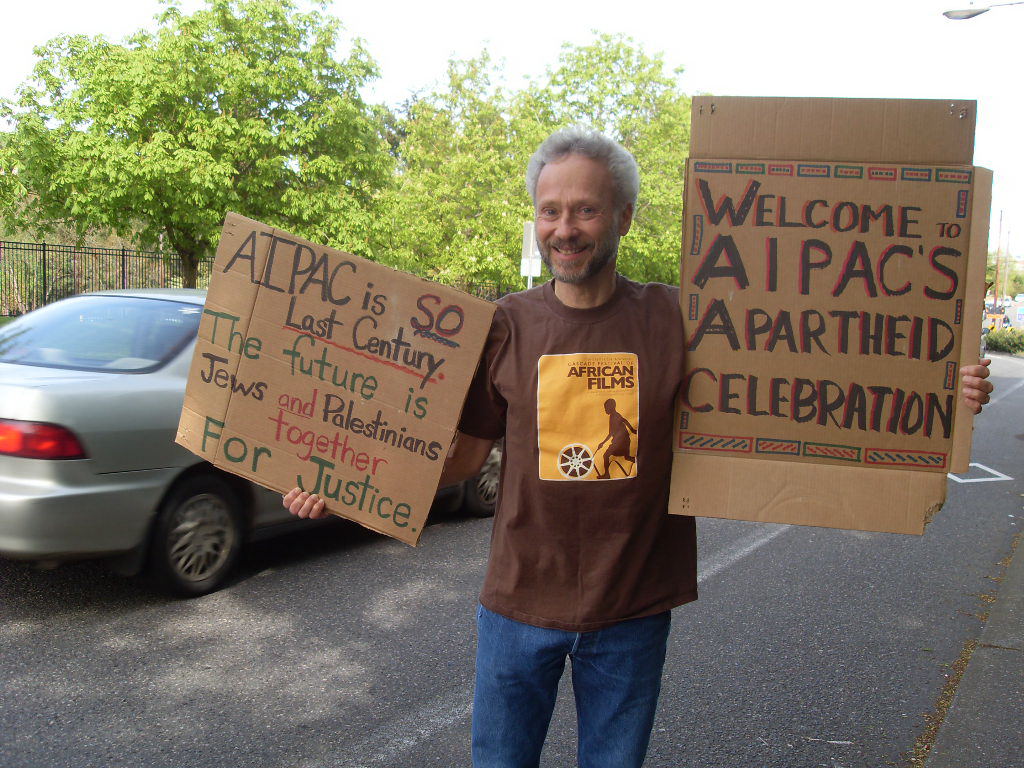 AIPAC is SO
Last Century.
The future is
Jews and Palestinians
together
For Justice.
CASCADE FESTIVAL OF
AFRICAN
FILMS
WELCOME TO
AIPAC'S
APARTHEID
CELEBRATION